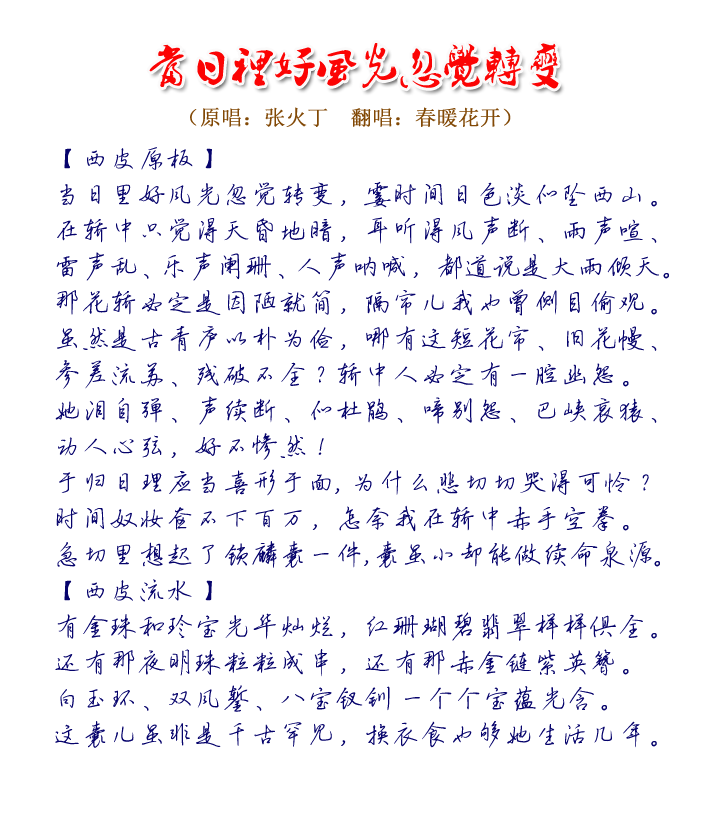 當日裡好風光忽覺轉變
（原唱：张火丁　翻唱：春暖花开）
【西皮原板】
当日里好风光忽觉转变，霎时间日色淡似坠西山。
在轿中只觉得天昏地暗，耳听得风声断、雨声喧、
雷声乱、乐声阑珊、人声呐喊，都道说是大雨倾天。
那花轿必定是因陋就简，隔帘儿我也曾侧目偷观。
虽然是古青庐以朴为俭，哪有这短花帘、旧花幔、
参差流苏、残破不全？轿中人必定有一腔幽怨。
她泪自弹、声续断、似杜鹃、啼别怨、巴峡哀猿、
动人心弦，好不惨然！
于归日理应当喜形于面,为什么悲切切哭得可怜？
时间奴妆奁不下百万，怎奈我在轿中赤手空拳。
急切里想起了锁麟囊一件,囊虽小却能做续命泉源。
【西皮流水】
有金珠和玲宝光华灿烂，红珊瑚碧翡翠样样俱全。
还有那夜明珠粒粒成串，还有那赤金链紫英簪。
白玉环、双凤錾、八宝钗钏一个个宝蕴光含。
这囊儿虽非是千古罕见，换衣食也够她生活几年。